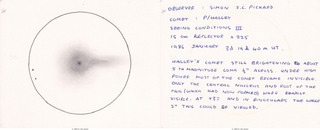 OBSERVER : SIMON S.L. PICKARD
COMET : P/HALLEY
SEEING CONDITIONS III
15 CM REFLECTOR x 335
1986 JANUARY 2d 19h 40m UT.
HALLEY'S COMET STILL BRIGHTENING TO ABOUT
5TH MAGNITUDE COMA ACROSS. UNDER HIGH
POWER MOST OF THE COMET BECAME INVISIBLE
ONLY THE CENTRAL NUCLEUS AND PART OF THE
TAIL (WHICH HAD NOW FORMED) WERE EASILY
VISIBLE. AT AND IN BINOCULARS THE WHOLE
2° TAIL COULD BE VIEWED.